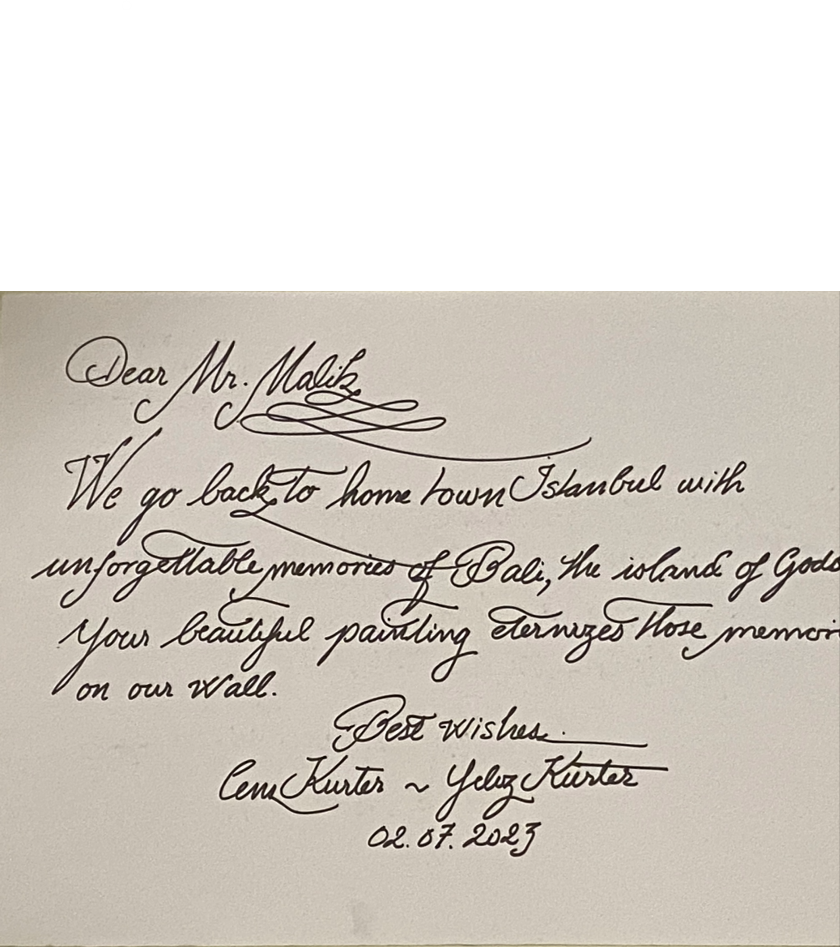 Dear Mr. Malik
We go back to home town Istanbul with
unforgettable memories of Bali, the island of Gods
Your beautiful painting eternizes those memori
on our wall.
Best wishes.
Cem Kurter ~ Yeliz Kurter
02.07.2023